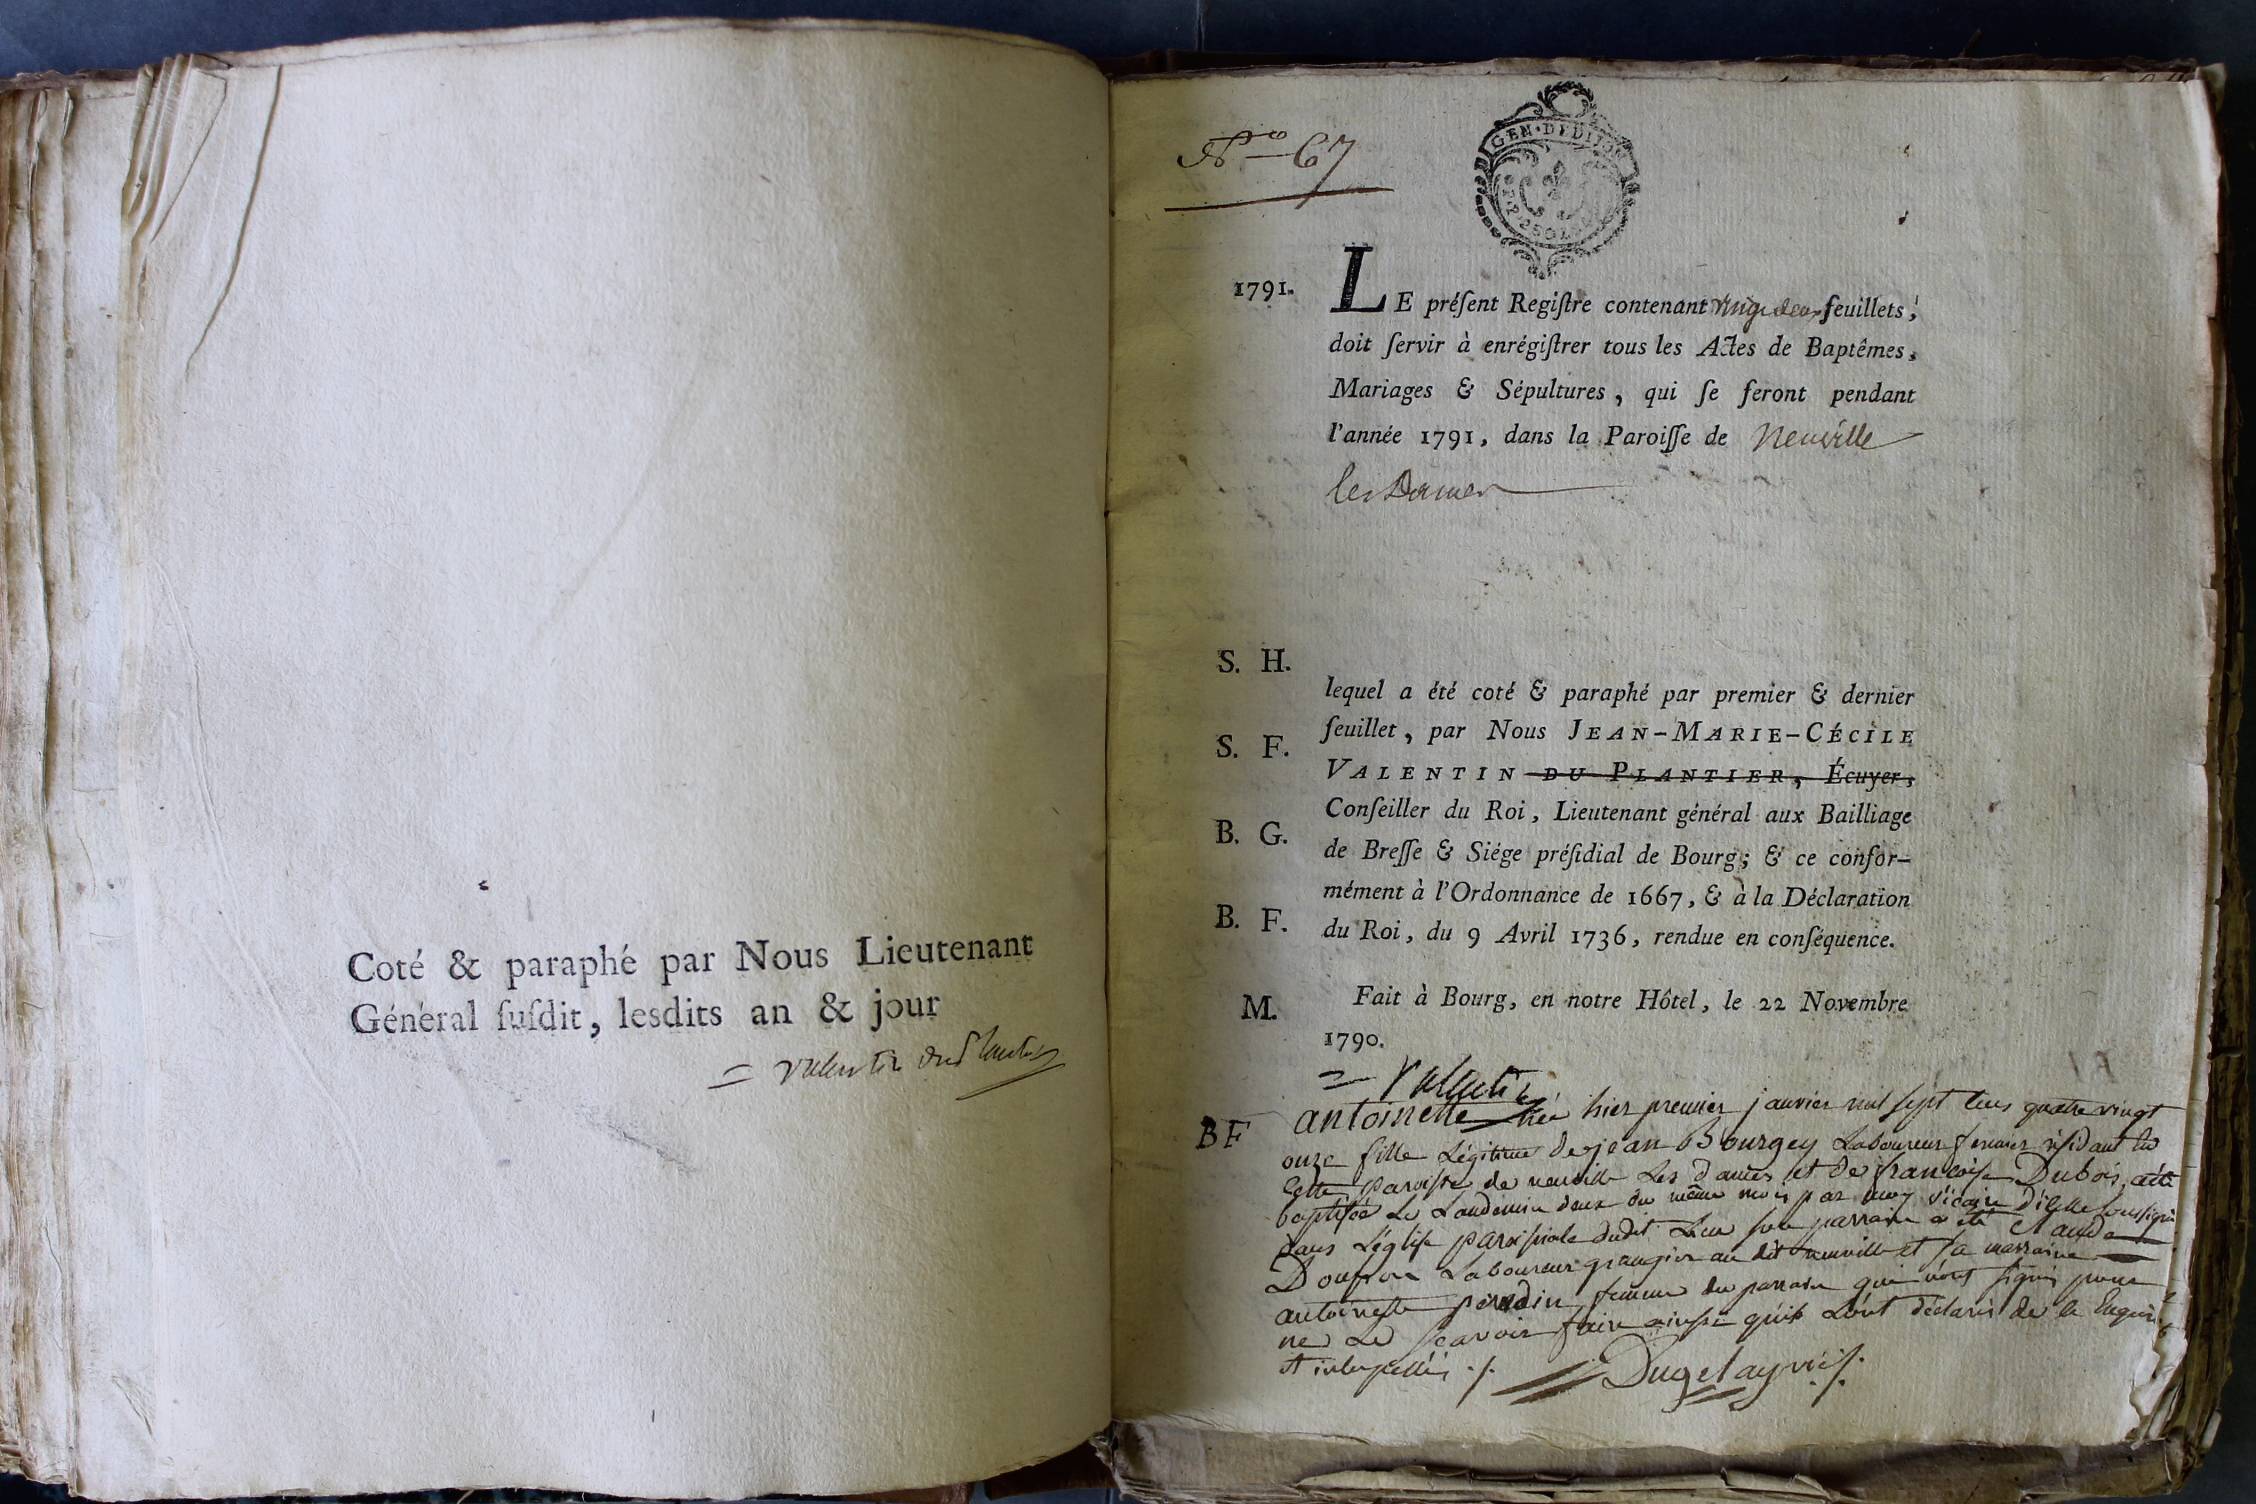 Coté & paraphé par Nous Lieutenant
Général ſuſdit, lesdits an & jour
Valentin duPlantier
Nº 67
GEN. DE DIJON
1791.
LE préſent Regiſtre contenant vingt deux feuillets,
doit ſervir à enrégiſtrer tous les Actes de Baptêmes,
Mariages & Sépultures, qui ſe feront pendant
l'année 1791, dans la Paroiſſe de Neuville
les Dames
S. H.
lequel a été coté & paraphé par premier & dernier
feuillet, par Nous JEAN-MARIE-CÉCILE
S. F.
VALENTIN DU PLANTIER, Écuyer,
Conſeiller du Roi, Lieutenant général aux Bailliage
B. G.
de Breſſe & Siége préſidial de Bourg; & ce confor-
mément à l'Ordonnance de 1667, & à la Déclaration
B. F.
du Roi, du 9 Avril 1736, rendue en conſéquence.
M.
Fait à Bourg, en notre Hôtel, le 22 Novembre
1790.
Valentin
BF
antoinette née hier premier janvier mil sept cens quatre vingt
onze fille Légitime de jean Bourgey Laboureur fermier résidant en
cette paroisse de neuville Les dames et de francoise Dubois, a été
baptisée Le Landemin deux du même mois par moy vicaire d'icelle soussigné
dans L'églisse paroissiale dudit Lieu son parrain a été Claude
Laboureur grangier au dit neuville et sa marraine
antoinette perdin femme du parrain qui n'ont signés pour
ne Le scavoir faire ainsi qu'ils L'ont déclarés de ce Enquis
et interpellés ./.
Dugelay vic./.